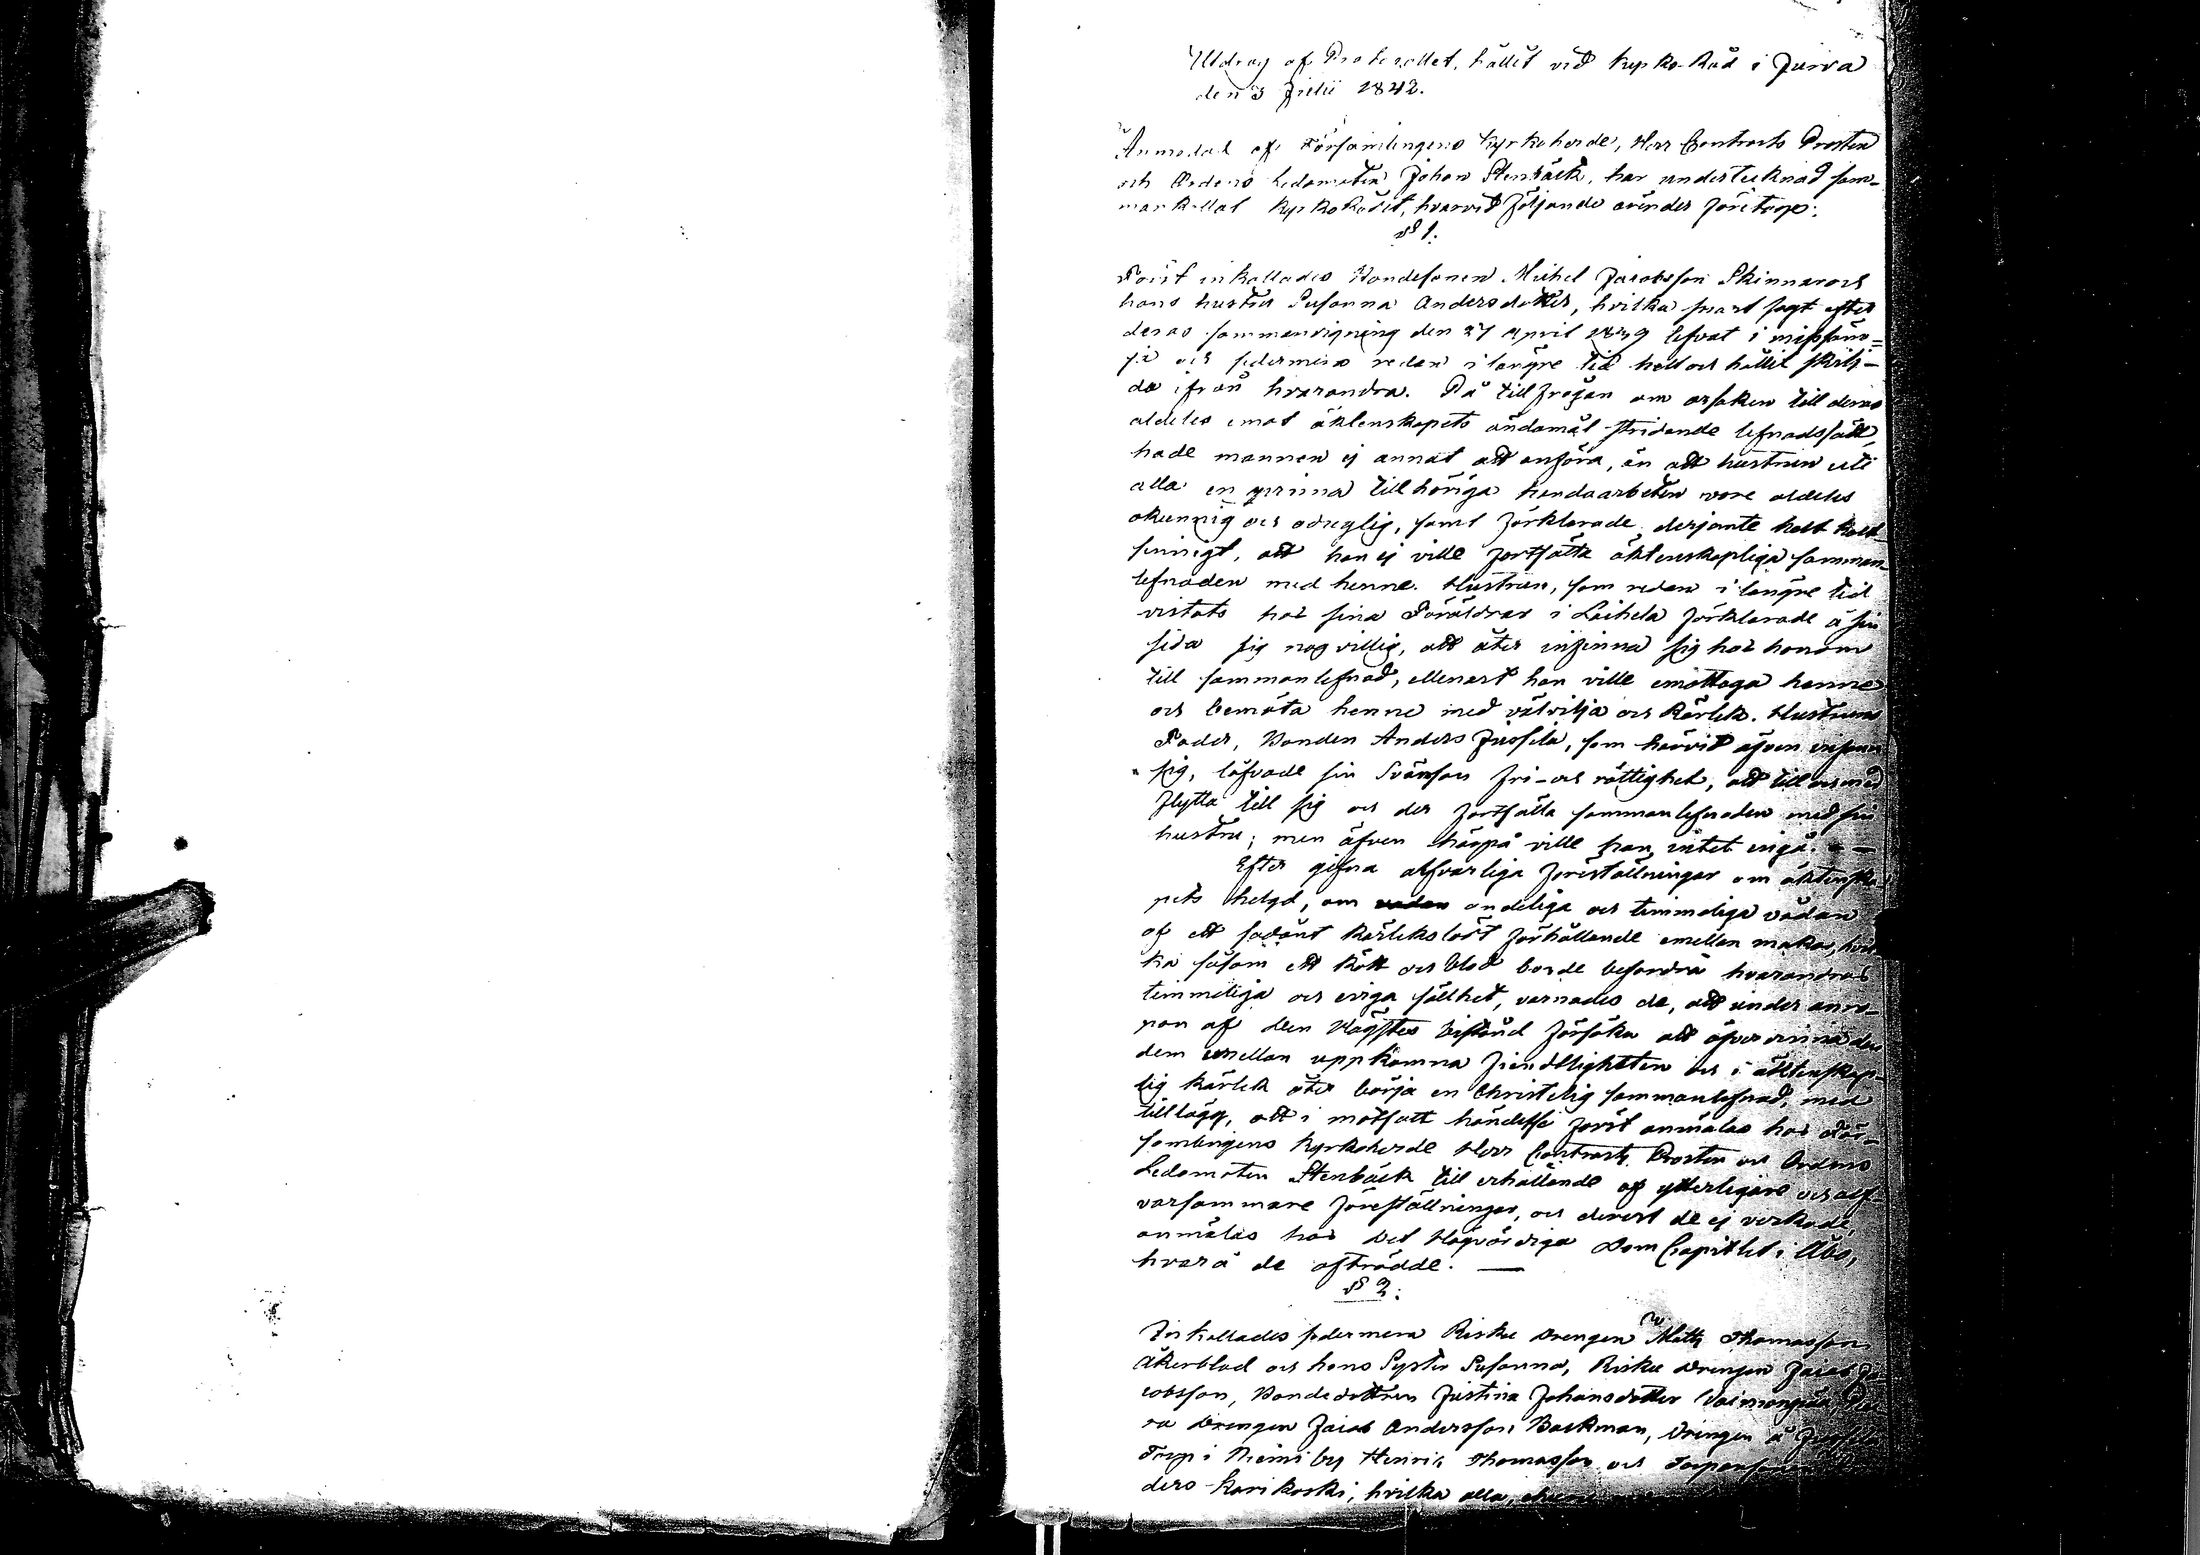 Utdrag af Protocollet, hållit vid Kyrko-Råd i Jurva
den 3 Julii 1842.
Anmodad af Församlingens Kyrkoherde, Herr Contracts Prosten
och Ordens Ledamoten Johan Stenbäck, har undertecknad sam-
mankallat KyrkoRådet, hvarvid följande ärender företogs:
§ 1.
Först inkallades Bondesonen Michel Jacobsson Skinnar och
hans hustru Susanna Andersdotter, hvilka snart sagt efter
deras sammanvigning den 27 April 1839 lefvat i missämn-
ja och sedermera redan i längre tid haft och hållit skilj-
da ifrån hvarandra. På tillfrågan om orsaken till deras
aldeles emot äktenskapets ändamål stridande lefnadssätt,
hade mannen ej annat att anföra, än att hustrun uti
alla en qvinna tillhöriga handaarbeten vore aldeles
okunnig och oduglig, samt förklarade derjemte helt kall-
sinnigt, att han ej ville fortsätta äktenskapliga samman-
lefnaden med henne. Hustrun, som redan i längre tid
vistats hos sina Föräldrar i Laihela förklarade å sin
sida sig nog villig, att åter infinna sig hos honom
till sammanlefnad, allenast han ville emottaga henne
och bemöta henne med välvilja och kärlek. Hustruns
Fader, Bonden Anders Jussila, som härvid äfven infann
sig, låfvade sin Svärson fri- och rättighet, att till och med
flytta till sig och der fortsätta sammanlefnaden med sin
hustru; men äfven härpå ville han intet ingå. — —
Efter gifna alfvarliga föreställningar om äktenska-
pets helgd, om andeliga och timmeliga vådan
af ett sådant kärlekslöst förhållande emellan makar, hvil-
ka såsom ett kött och blod borde befordra hvarandras
timmeliga och eviga sällhet, varnades de, att under anro-
pan af den Högstes bistånd försöka att öfvervinna den
dem emellan uppkomna fiendtligheten och i äktenskap-
lig kärlek åter börja en Christelig sammanlefnad, med
tillägg, att i motsatt händelse först anmälas hos För-
samlingens Kyrkoherde Herr Contracts Prosten och Ordens
Ledamoten Stenbäck till erhållande af ytterligare och alf-
varsammare föreställningar, och derest de ej verkade,
anmälas hos Det Högvördiga DomCapitlet i Åbo,
hvarå de afträdde. —
§ 2.
Inkallades sedermera Riska Drengen Matts Thomasson
Åkerblad och hans Syster Susanna, Riska Drengen Jacob Ja-
cobsson, Bondedottren Justina Johansdotter
Drengen Jacob Andersson Backman, Drengen å
Torp i Niemi by Henric Thomasson och
ders Karikoski, hvilka alla,